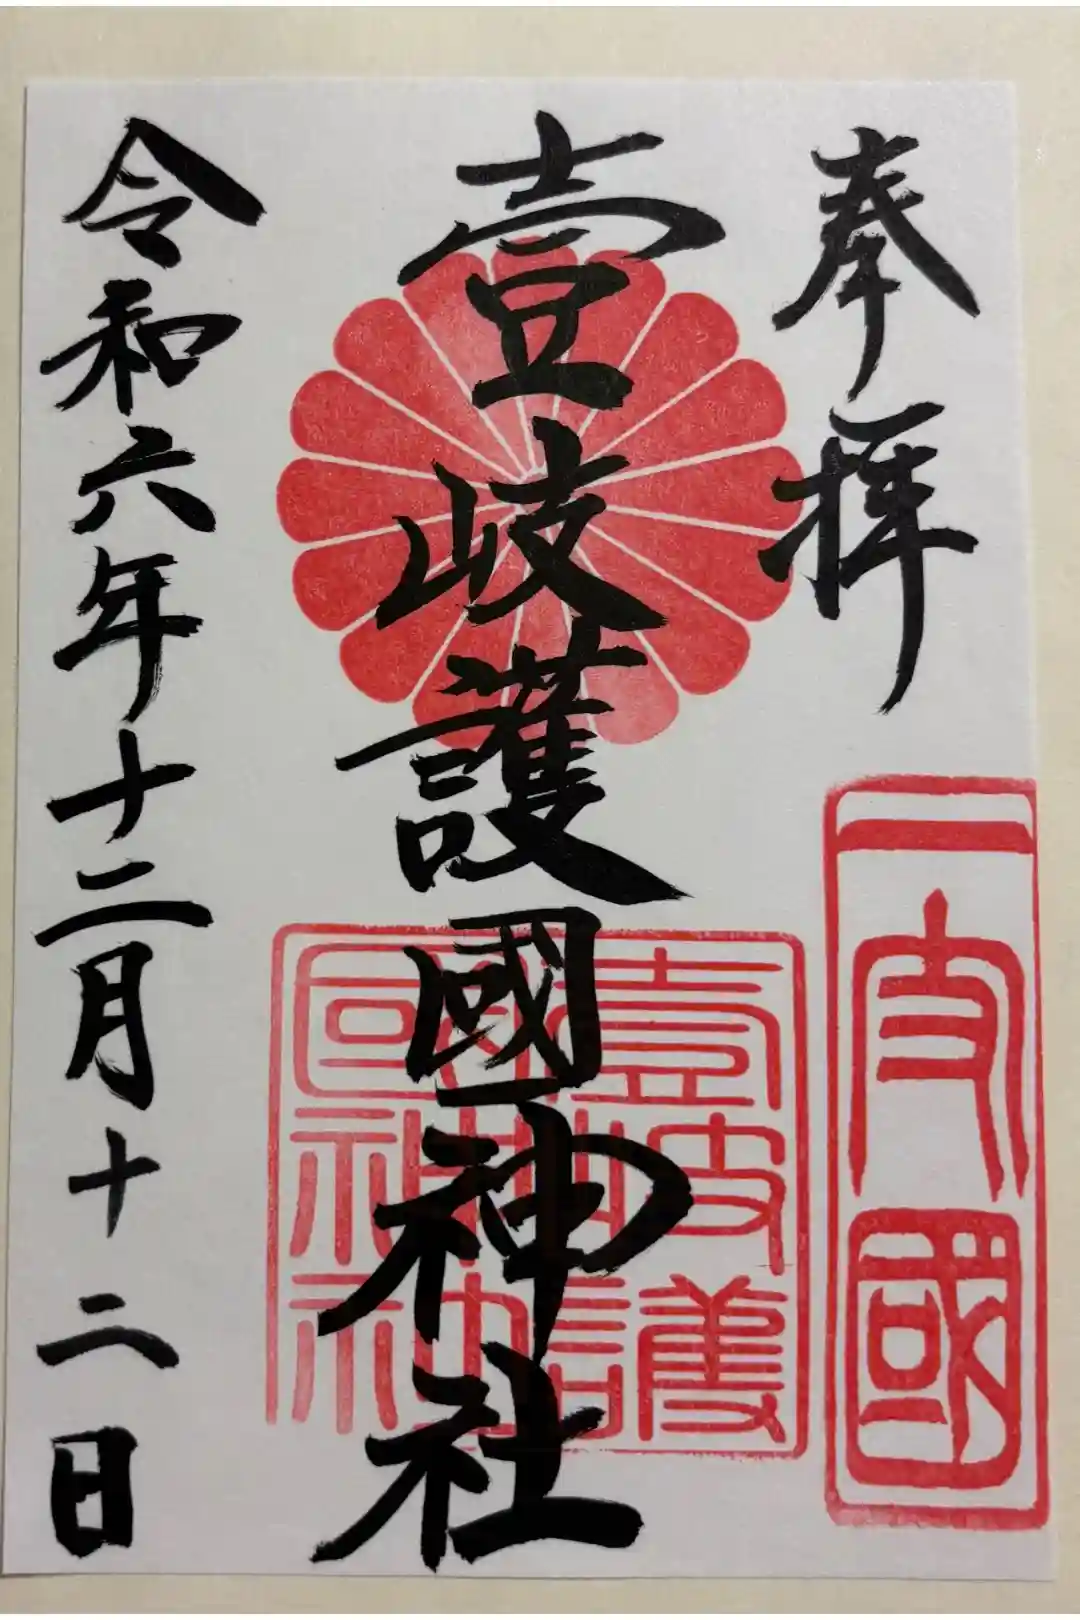 奉拝
壹岐護國神社
令和六年十二月十二日
壹岐護
國神社